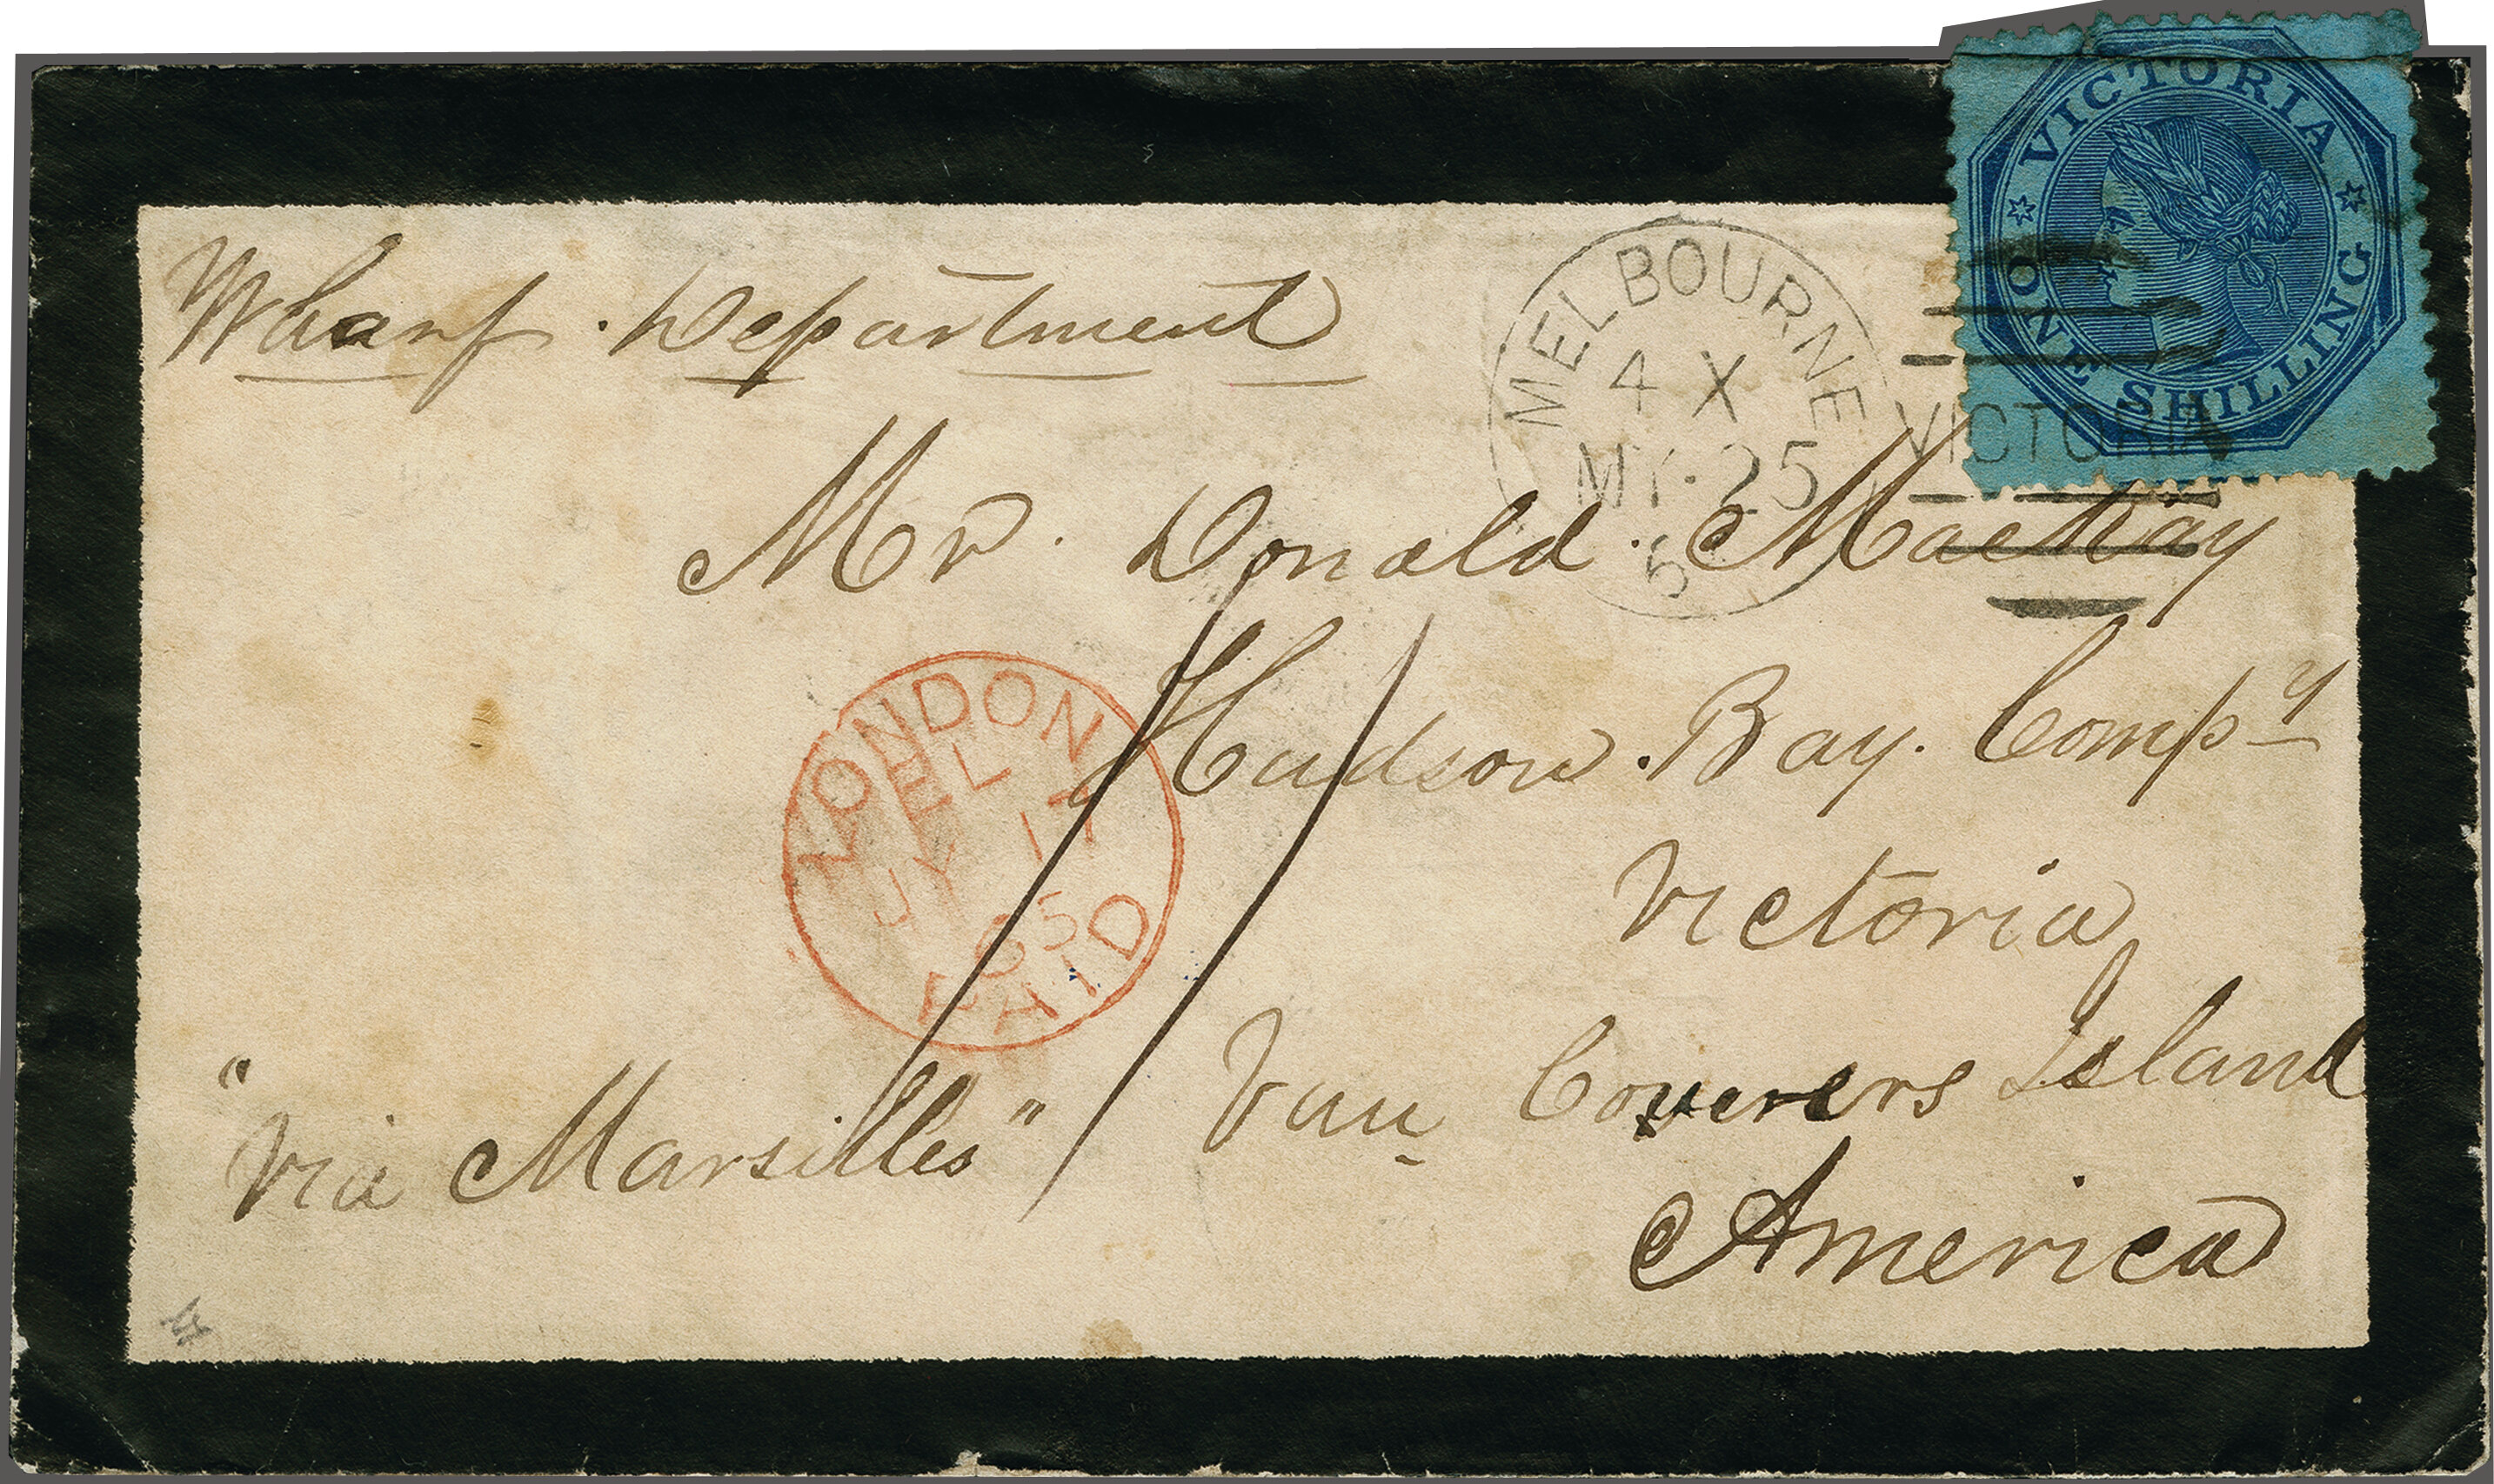 VICTORIA
ONE SHILLING
Wharf. Department
MELBOURNE
4 X
MY·25
VICTORIA
Mr. Donald. Mackay
Hudson. Bay. Compy
Victoria
Van Couvers Island
America
LONDON
EL
JY 17
65
PAID
"Via Marsilles"
1/